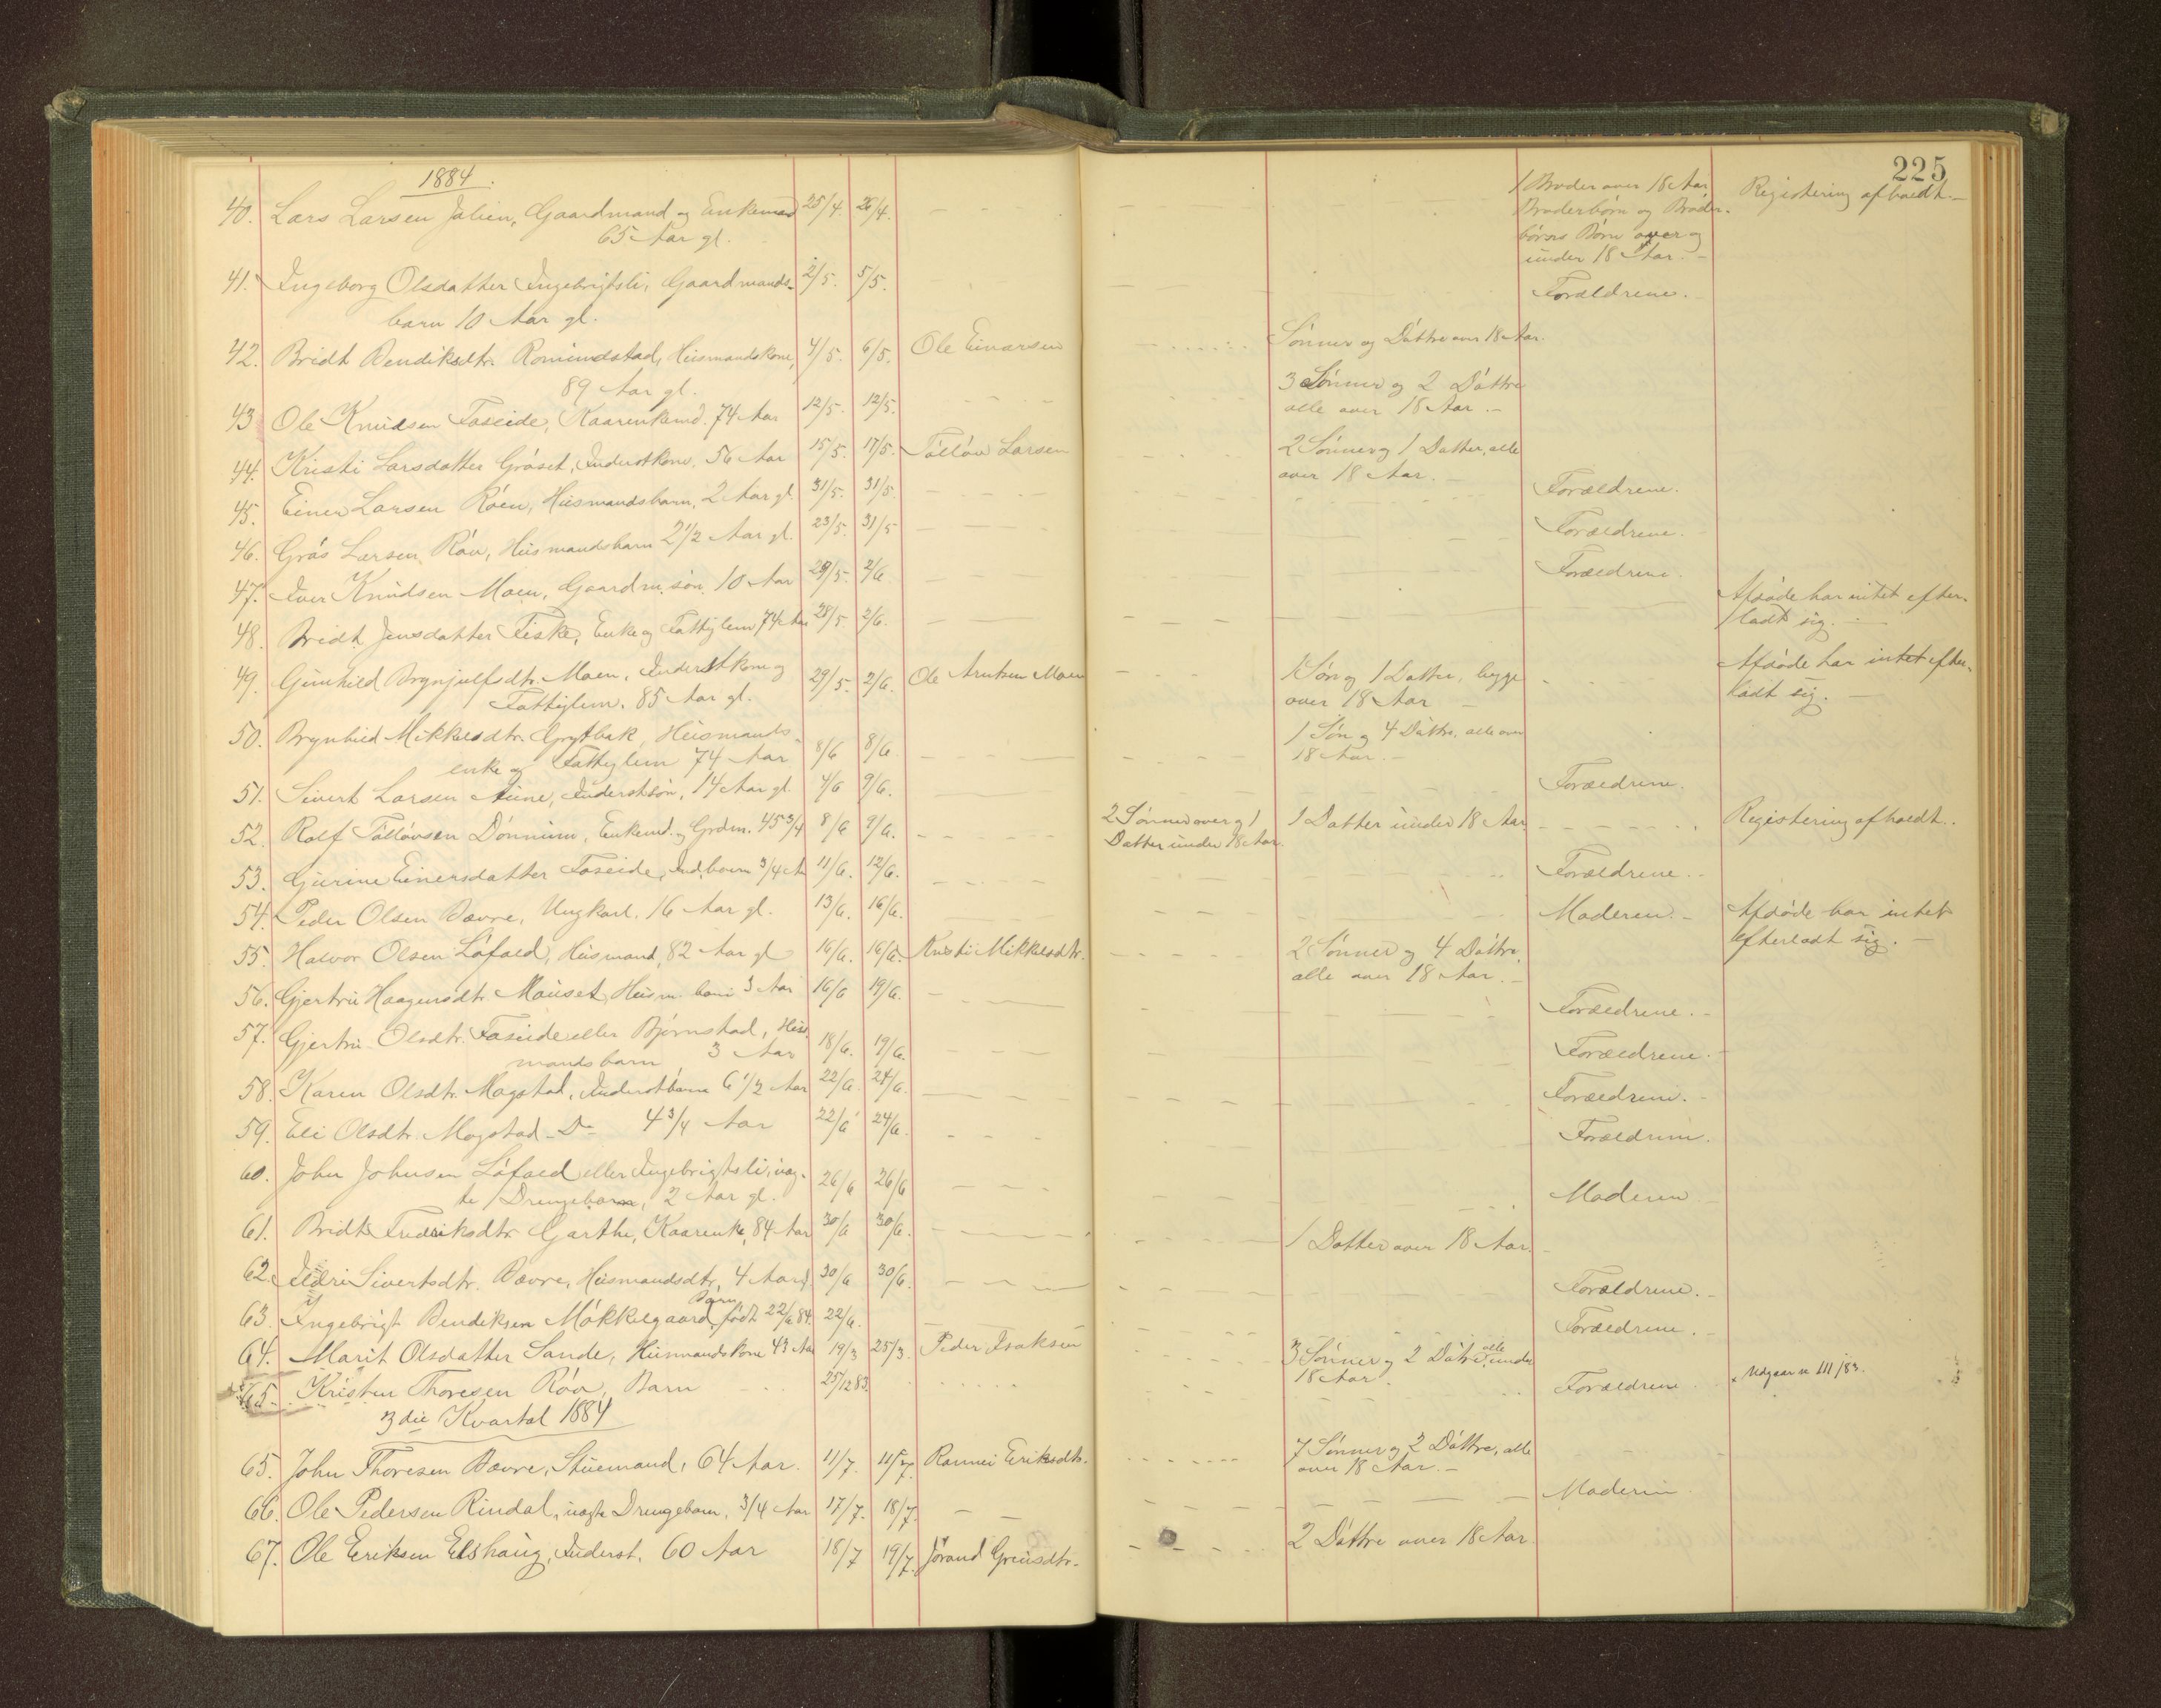 225
1884.
40. Lars Larsen Jalien, Gaardmand og Enkemand 25/4. 26/4. 1 Broder over 18 Aar, Registering afholdt.-
65 Aar gl. Broderbørn og Broder-
børns Børn over og
under 18 Aar.-
41. Ingeborg Olsdatter Ingebrigtsli, Gaardmands- 2/5. 5/5. Forældrene.
barn 10 Aar gl.
42. Bridt Bendiksdtr. Romundstad, Husmandskone, 4/5. 6/5. Ole Einarsen Sönner og Döttre over 18 Aar.
89 Aar gl.
43 Ole Knudsen Foseide, Kaarenkemd. 74 Aar 12/5. 12/5. 3 Sönner og 2 Döttre
alle over 18 Aar.-
44. Kristi Larsdatter Gröset, Inderstkone, 56 Aar 15/5. 17/5. Tölløv Larsen 2 Sönner og 1 Datter, alle
over 18 Aar.-
45. Einer Larsen Röen, Husmandsbarn, 2 Aar gl. 31/5. 31/5. Forældrene.
46. Grös Larsen Röv, Husmandsbarn 2 1/2 Aar gl. 23/5. 31/5 Forældrene.
47. Iver Knudsen Moen, Gaardm. sön, 10 Aar 29/5. 2/6 Forældrene.
48. Bridt Jensdatter Fiske, Enke og Fattiglem 74 Aar 28/5. 2/6. Afdöde har intet efter-
ladt sig.
49. Gunhild Brynjulfsdtr. Moen, Inderstkone og 29/5. 2/6. Ole Arntsen Moen 1 Sön og 1 Datter, begge Afdöde har intet efter-
Fattiglem. 85 Aar gl. over 18 Aar - ladt sig.-
50. Brynhild Mikkelsdtr. Grytbak, Husmands- 8/6 8/6. 1 Sön og 4 Döttre, alle over
enke og Fattiglem 74 Aar 18 Aar.-
51. Sivert Larsen Aune, Inderstsön, 14 Aar gl. 4/6 9/6. Forældrene.
52. Rolf Tölløvsen Dönnum, Enkemd. og Grdm. 45 3/4 8/6 9/6. 2 Sönner over og 1 1 Datter under 18 Aar Registering afholdt..
Datter under 18 Aar.
53. Gurine Einersdatter Foseide, Ind. barn 3/4 A 11/6. 12/6. Forældrene.-
54. Peder Olsen Bævre, Ungkarl, 16 Aar gl. 13/6. 16/6. Moderen.- Afdöde har intet
efterladt sig.-
55. Halvor Olsen Löfald, Husmand, 82 Aar gl 16/6. 16/6. Kristi Mikkelsdtr. 2 Sönner og 4 Döttre,
alle over 18 Aar.-
56. Gjertru Haagensdtr. Mauset, Husm. barn 3 Aar 16/6 19/6. Forældrene.-
57. Gjertru Olsdtr. Foseide eller Bjørnstad, Hus- 18/6. 19/6. Forældrene.
mandsbarn 3 Aar
58. Karen Olsdtr. Mogstad, Inderstbarn 6 1/2 Aar 22/6. 24/6. Forældrene.-
59. Eli Olsdtr. Mogstad - Do 4 3/4 Aar 22/6 24/6. Forældrene.
60. John Johnsen Löfald eller Ingebrigtsli, uæg- 26/6 26/6 Moderen
te Drengebarn, 2 Aar gl.
61. Bridt Fredriksdtr Garthe, Kaarenke, 84 Aar 30/6 30/6. 1 Datter over 18 Aar.
62. Ildri Sivertsdtr. Bævre, Husmandsdtr, 4 Aar 30/6. 30/6. Forældrene.-
63. Ingebrigt Bendiksen Mökkelgaard, Barn, födt 22/6 84. 22/6. Forældrene.-
64. Marit Olsdatter Sande, Husmandskone 43 Aar 19/3 25/3. Peder Isaksen 3 Sönner og 2 Döttre, alle under
18 Aar.
65. Kristen Thoresen Röv, Barn 25/12 83. Forældrene. Udgaar se 111/83.
3die Kvartal 1884
65. John Thoresen Bævre, Stuemand, 64 Aar. 11/7. 11/7. Rannei Eriksdtr. 7 Sönner og 2 Döttre, alle
over 18 Aar.-
66. Ole Pedersen Rindal, uægte Drengebarn, 3/4 Aar 17/7. 18/7. Moderen
67. Ole Eriksen Elshaug, Inderst, 60 Aar 18/7 19/7. Jörand Greusdtr. 2 Döttre over 18 Aar